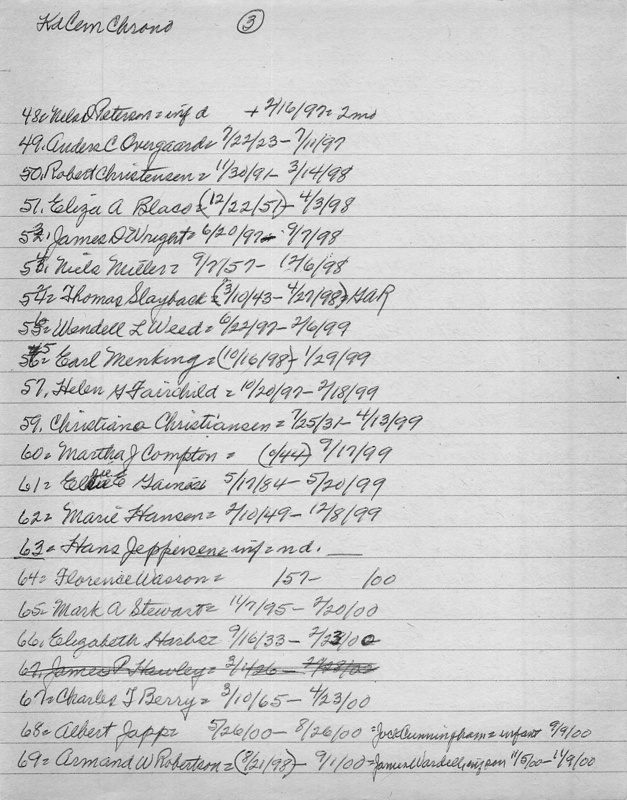 Kd Cem Chrono ③
48= Nels D Peterson = inf d + 2/16/97 = 2mo
49. Anders C Overgaard = 7/22/23 - 7/11/97
50. Robert Christensen = 11/30/91 - 3/14/98
51. Eliza A Blaco = (12/22/51) - 4/3/98
53. James D Wright = 6/20/97 - 9/7/98
54. Niels Miller = 9/7/57 - 12/6/98
52 = Thomas Slayback = (3/10/43 - 4/27/98) = GAR
56 = Wendell L Weed = 6/22/97 - 2/6/99
55 = Earl Menking = (10/16/98) 1/29/99
57. Helen G Fairchild = 10/20/97 - 2/18/99
59. Christiana Christiansen = 7/25/31 - 4/13/99
60 = Martha J Compton = (c/44) 9/17/99
61 = E Gaines 5/17/84 - 5/20/99
62 = Marie Hansen = 2/10/49 - 12/8/99
63 = Hans Jeppersene inf = nd. __
64 = Florence Wasson = /57 - /00
65 = Mark A Stewart = 11/7/95 - 2/20/00
66. Elizabeth Harbs = 9/16/33 - 2/23/00
67. James P Hawley = 3/1/26 -
67 = Charles T Berry = 3/10/65 - 4/23/00
68 = Albert Japp = 5/26/00 - 8/26/00 = Jock Cunningham = infant 9/9/00
69 = Armand W Robertson = (8/21/98) - 9/1/00 = James Wardell 11/5/00 - 11/9/00